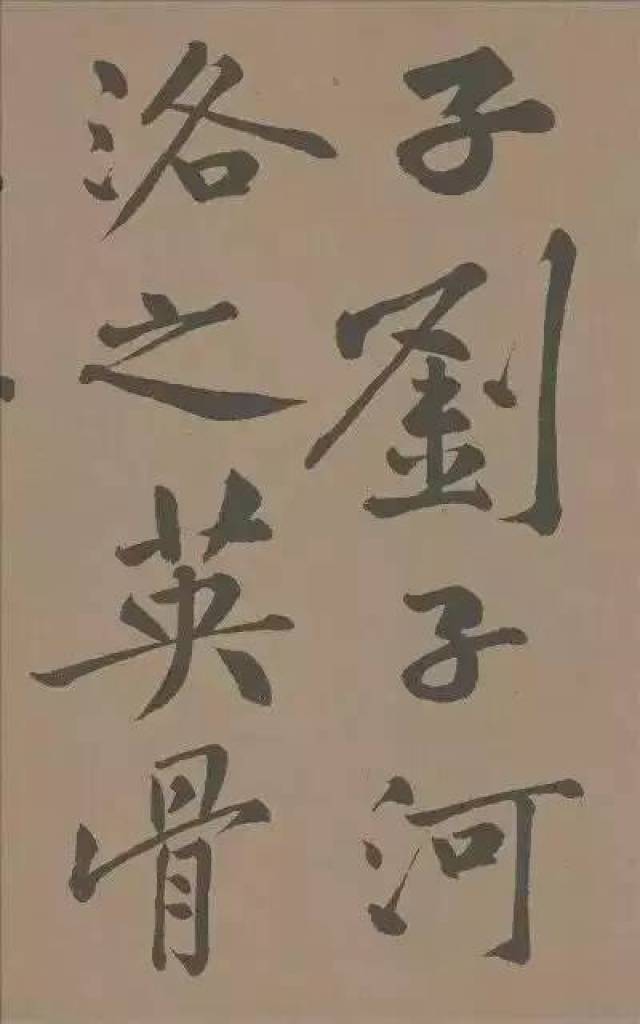 子劉子河
洛之英骨